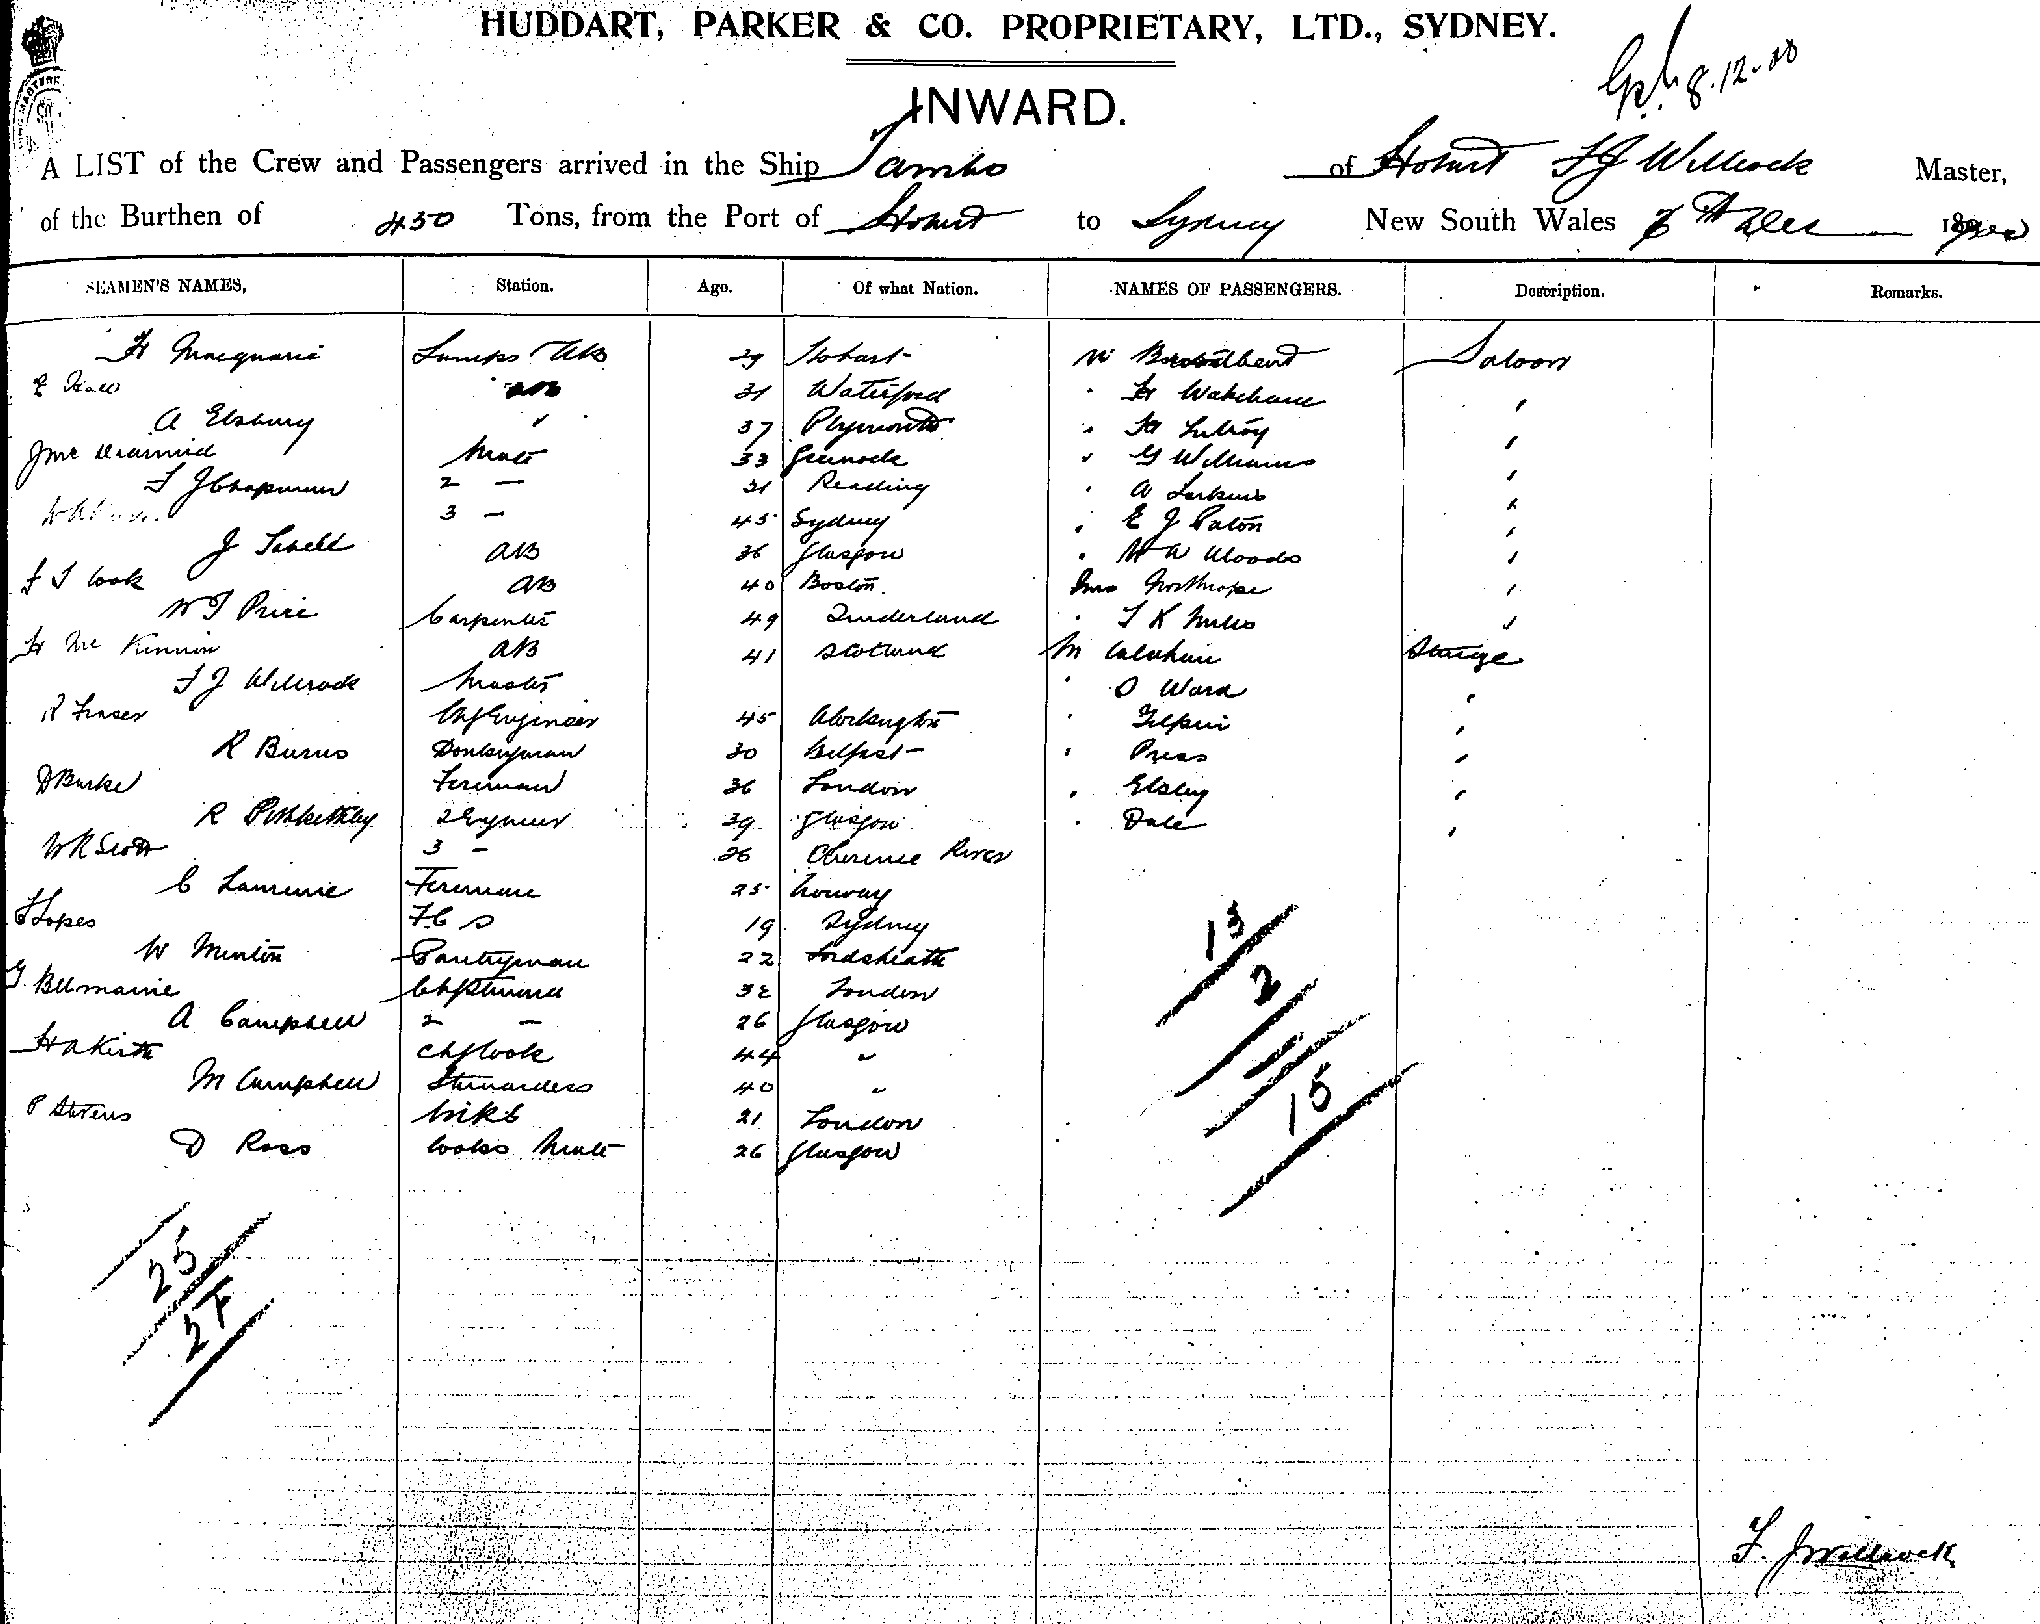 HUDDART, PARKER & CO. PROPRIETARY, LTD., SYDNEY.
8.12.00
INWARD.
A LIST of the Crew and Passengers arrived in the Ship Tambo of Hobart F J Willcock Master,
of the Burthen of 450 Tons, from the Port of Hobart to Sydney New South Wales Dec
SEAMEN'S NAMES, Station. Age. Of what Nation. NAMES OF PASSENGERS. Description. Remarks.
H Macquarie Lamps AB 29 Hobart Mr Broadbent Saloon
AB 31 Waterford " H Wakeham "
A Elsbury " 37 Plymouth " "
J McDiarmid Mate 33 Greenock " G Williams "
F J Chapman 2 — 31 Reading " A Larkins "
3 — 45 Sydney " E J Paton "
J Sabell AB 36 Glasgow " Woods "
F S Cook AB 40 Boston Northrope "
W T Price Carpenter 49 Sunderland " T K Miles "
H McKinnon AB 41 Scotland M Calahan Steerge
F J Willcock Master " O Ward "
R Fraser Chf Engineer 45 Workington " Gilpin "
R Burns Donkeyman 30 Belfast " Press "
D Burke Fireman 36 London " Elsley "
R Pitkethley 2 Engineer 39 Glasgow " Dale "
W R Scott 3 — 26 Clarence River
C Laurence Fireman 25 Norway
F Lopes 19 Sydney
W Minton Pantryman 22
G Belmaine Chf Steward 32 London
A Campbell 2 — 26 Glasgow
H A Kirth Chf Cook 44 "
M Campbell Stewardess 40 "
P Stevens 21 London
D Ross Cooks Mate 26 Glasgow
13
2
15
25
27
F. J Willcock